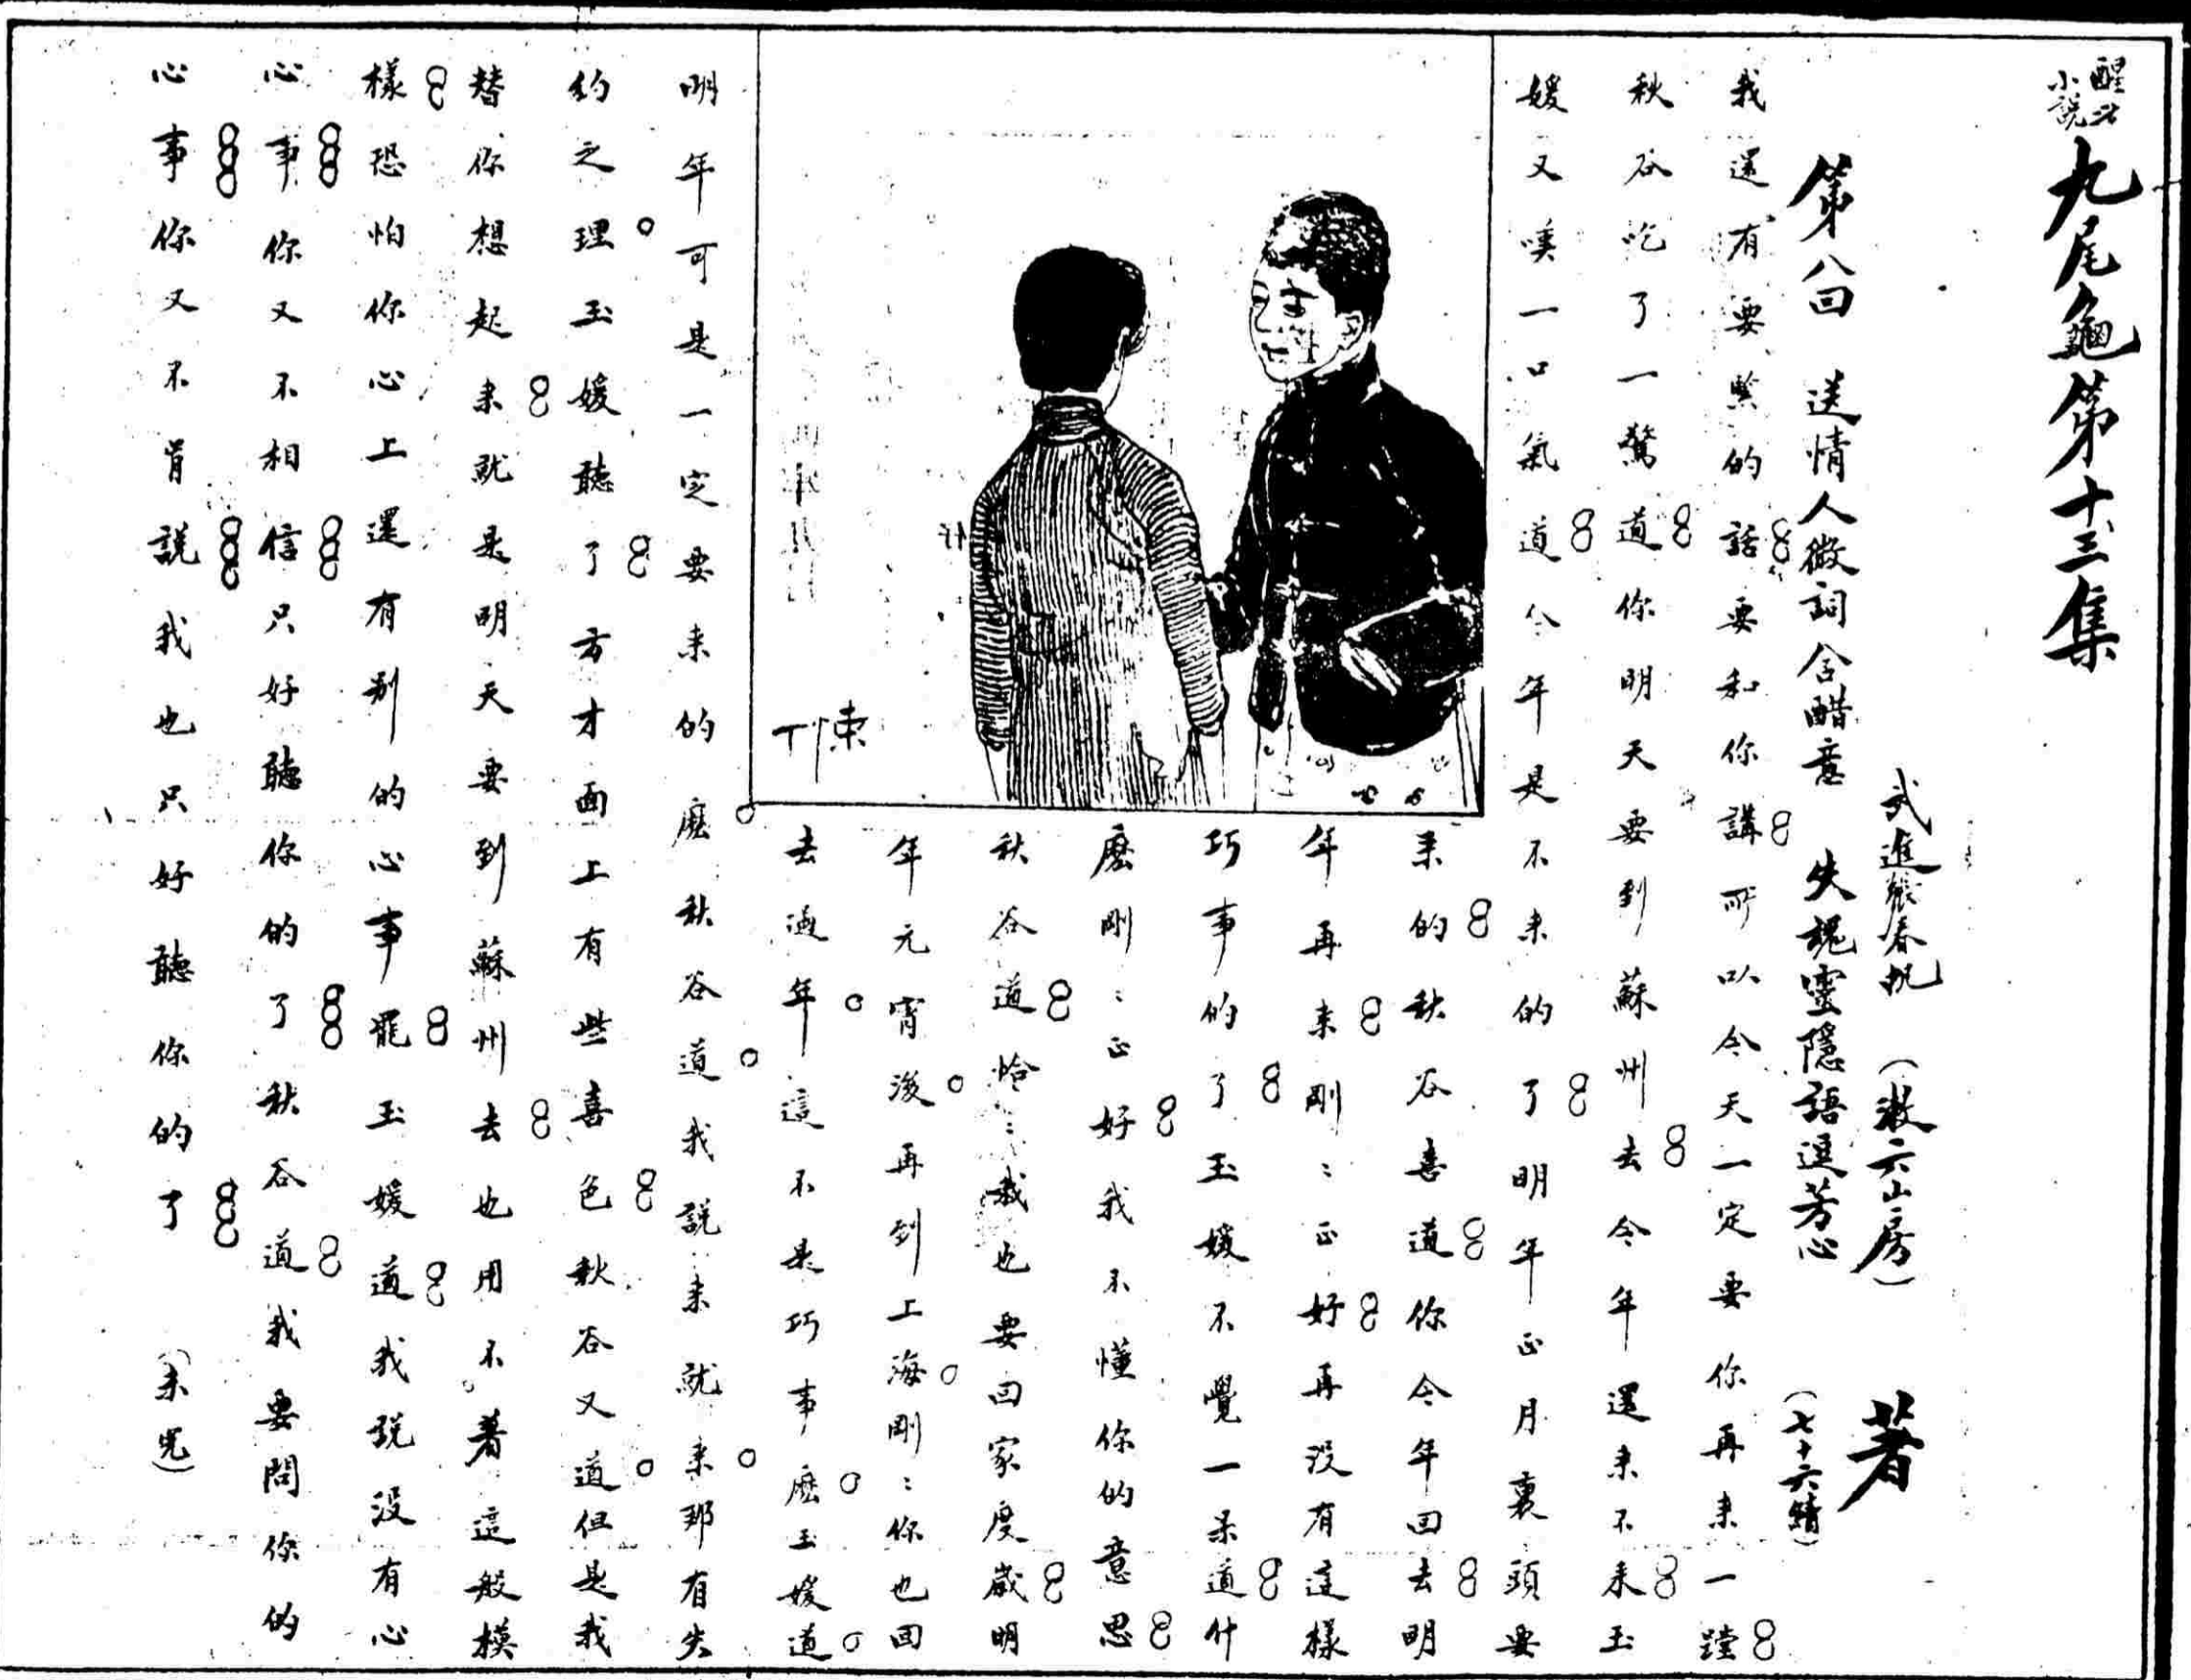 醒世小說
九尾龜第十三集
武進張春帆（漱六山房）著
第八回　送情人微詞含醋意　失魂靈隱語逗芳心（七十六續）
我還有要緊的話要和你講所以今天一定要你再來一蹚
秋谷吃了一驚道你明天要到蘇州去今年還來不來玉
媛又嘆一口氣道今年是不來的了明年正月裏頭要
來的秋谷喜道你今年回去明
年再來剛：正好再沒有這樣
巧事的了玉媛不覺一呆道什
麼剛：正好我不懂你的意思
秋谷道恰：我也要回家度歲明
年元宵後再到上海剛：你也回
去過年這不是巧事麼玉媛道
明年可是一定要來的麼秋谷道我說來就來那有失
約之理玉媛聽了方才面上有些喜色秋谷又道但是我
替你想起來就是明天要到蘇州去也用不着這般模
樣恐怕你心上還有別的心事罷玉媛道我說沒有心
心事你又不相信只好聽你的了秋谷道我要問你的
心事你又不肯說我也只好聽你的了（未完）
陳